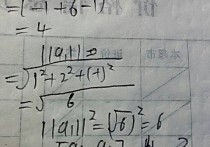 =[-1+6-1
=4
||a₁||=
=√1²+2²+(-1)²
=√6
||a₁||²=(√6)²=6